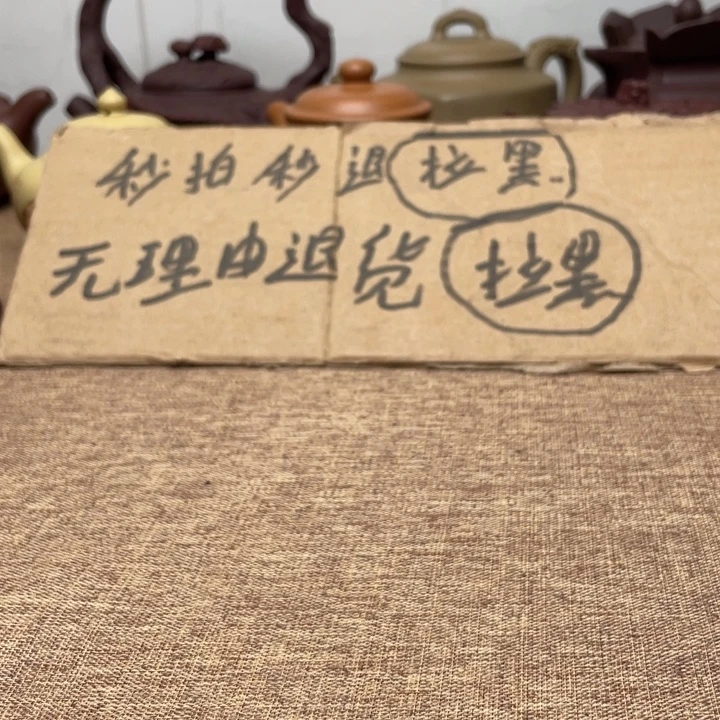 秒拍秒退拉黑
无理由退货拉黑